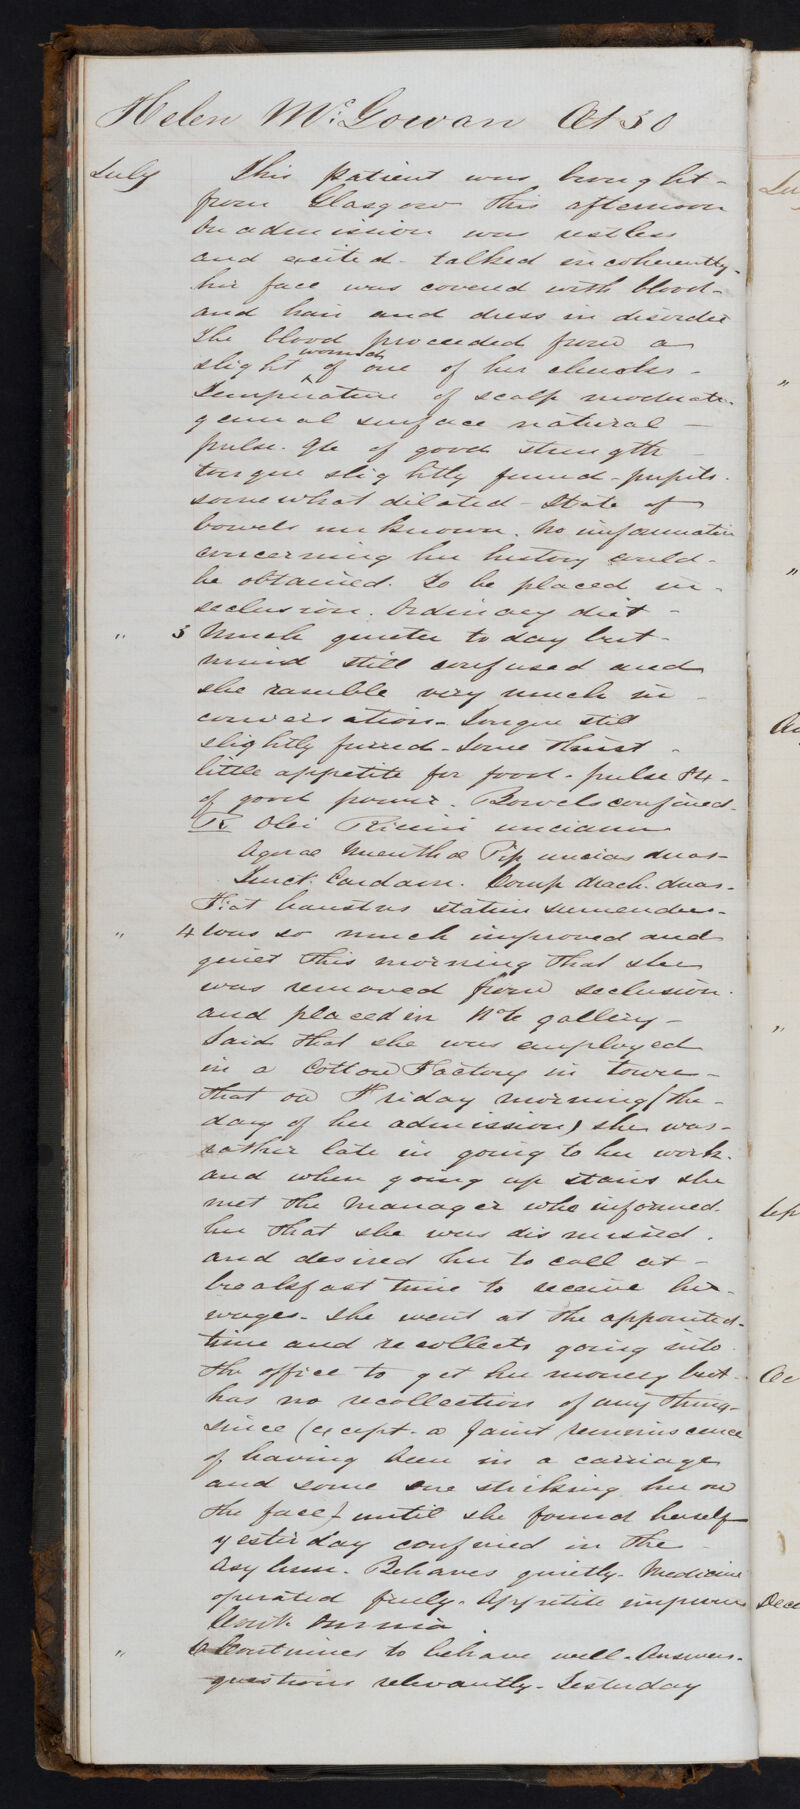 Helen McGowan Æt 30
July This patient was brought-
from Glasgow this afternoon
On admission was restless
and excited- talked incoherently-
her face was covered with blood-
and hair and dress in disorder
The blood proceeded from a
slight wound of one of her cheeks-
Temperature of scalp moderate-
general surface natural-
pulse. 96 of good strength
tongue slightly furred-pupils.
somewhat dilated- State of
bowels unknown. No information
concerning her history could-
be obtained. To be placed in-
seclusion. Ordinary diet-
" 3 Much quieter to day but-
mind still confused and
she ramble very much in-
conversation- Tongue still
slightly furred-Some thirst-
little appetite for food- pulse 84-
of good power. Bowels confined-
R. Olei Ricini unciam
Aquae Menthae Pip uncias duas-
Tinct. Cardam. Comp drach. duas-
Fiat haustus statim sumendus-
" 4 Was so much improved and
quiet this morning that she
was removed from seclusion.
and placed in No 6 gallery-
Said that she was employed
in a Cotton Factory in town-
that on Friday morning (the-
day of her admission) she was-
rather late in going to her work.
and when going up stairs she
met the Manager who informed.
her that she was dismissed.
and desired her to call at-
breakfast time to receive her-
wages- She went at the appointed-
time and recollects going into
the office to get her money but-
has no recollection of any thing-
since (except- a faint reminiscence
of having been in a carriage
and some one striking her on
the face) until she found herself
yesterday confined in the
Asylum- Behaves quietly- Medicine
operated freely. Appetite improves
Cont. omnia
" 6 Continues to behave well-Answers-
questions relevantly- Yesterday
Ju
"
"
Au
"
Sep
Oc
Dec